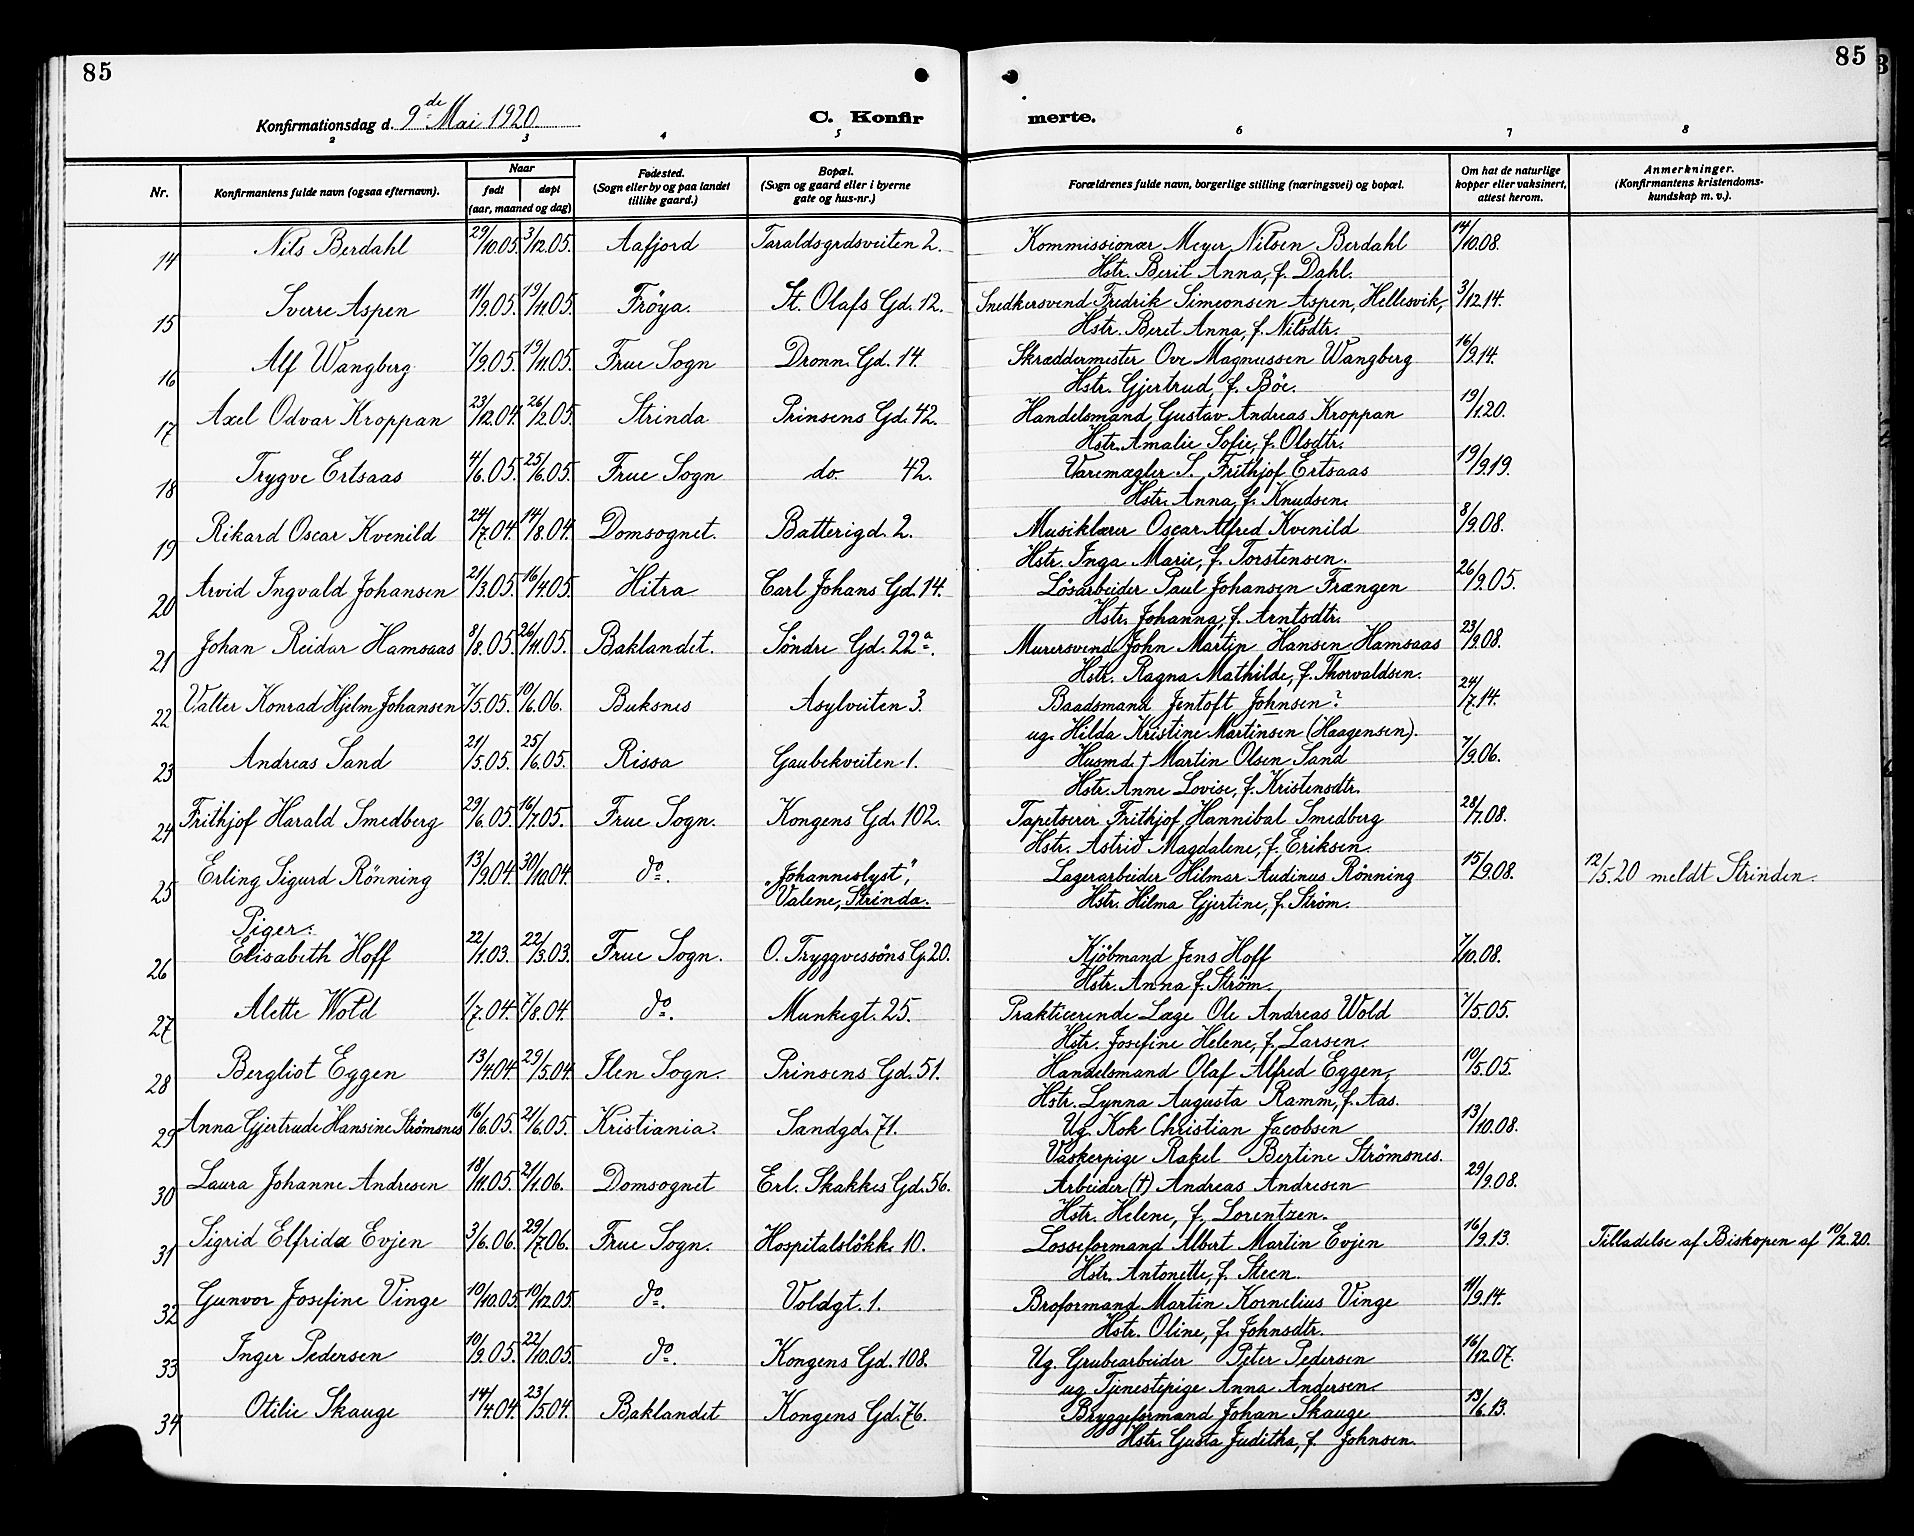 85
85
Konfirmationsdag d. 9de Mai 1920
C. Konfir
merte.
2 3 4 5 6 7 8
Nr.
Konfirmantens fulde navn (ogsaa efternavn).
Naar
født døpt
(aar, maaned og dag)
Fødested.
(Sogn eller by og paa landet
tillike gaard.)
Bopæl.
(Sogn og gaard eller i byerne
gate og hus-nr.)
Forældrenes fulde navn, borgerlige stilling (næringsvei) og bopæl.
Om hat de naturlige
kopper eller vaksinert,
attest herom.
Anmerkninger.
(Konfirmantens kristendoms-
kundskap m. v.).
14 Nils Berdahl 29/10.05. 3/12.05. Aafjord Taraldsgrdsveiten 2. Kommissionær Meyer Nilsen Berdahl 14/10.08.
Hstr. Berit Anna, f. Dahl.
15 Sverre Aspen 11/9.05. 19/11.05. Frøya. St. Olafs Gd. 12. Snedkersvend Fredrik Simeonsen Aspen, Hellesvik, 3/12.14.
Hstr. Beret Anna, f. Nilsdtr.
16 Alf Wangberg 7/9.05. 19/11.05. Frue Sogn Dronn. Gd. 14. Skræddermester Ove Magnussen Wangberg 16/9.14.
Hstr. Gjertrud, f. Böe.
17 Axel Odvar Kroppan 23/12.04. 26/2.05. Strinda Prinsens Gd. 42. Handelsmand Gustav Andreas Kroppan 19/1.20.
Hstr. Amalie Sofie, f. Olsdtr.
18 Trygve Ertsaas 4/6.05. 25/6.05. Frue Sogn do. 42. Varemægler S. Frithjof Ertsaas 19/9.19.
Hstr. Anna, f. Knudsen.
19 Rikard Oscar Kvenild 24/7.04. 14/8.04. Domsognet. Batterigd. 2. Musiklærer Oscar Alfred Kvenild 8/9.08.
Hstr. Inga Marie, f. Torstensen.
20 Arvid Ingvald Johansen 21/3.05. 16/4.05. Hitra Carl Johans Gd. 14. Lösarbeider Paul Johansen Frængen 26/9.05.
Hstr. Johanna, f. Arntsdtr.
21 Johan Reidar Hamsaas 8/8.05. 26/11.05. Baklandet. Söndre Gd. 22a. Murersvend John Martin Hansen Hamsaas 23/9.08.
Hstr. Ragna Mathilde, f. Thorvaldsen.
22 Valter Konrad Hjelm Johansen 7/5.05. 10/6.06. Buksnes Asylveiten 3. Baadsmand Jentoft Johnsen? 24/7.14.
ug. Hilda Kristine Martinsen (Haagensen).
23 Andreas Sand 21/5.05. 25/6.05. Rissa Gaubekveiten 1. Husmd. † Martin Olsen Sand 7/9.06.
Hstr. Anne Lovise, f. Kristensdtr.
24 Frithjof Harald Smedberg 29/6.05. 16/7.05. Frue Sogn. Kongens Gd. 102. Tapetserer Frithjof Hannibal Smedberg 28/7.08.
Hstr. Astrid Magdalene, f. Eriksen.
25 Erling Sigurd Rönning 13/9.04. 30/10.04. do. "Johanneslyst", Lagerarbeider Hilmar Audinus Rönning 15/9.08. 12/5.20 meldt Strinden.
Valene, Strinda. Hstr. Hilma Gjertine, f. Ström.
Piger:
26 Elisabeth Hoff 22/1.03. 22/3.03. Frue Sogn. O. Tryggvessöns G. 20. Kjöbmand Jens Hoff 7/10.08.
Hstr. Anna f. Ström.
27 Alette Wold 1/7.04. 7/8.04. do. Munkegt. 25. Prakticerende Læge Ole Andreas Wold 7/5.05.
Hstr. Josefine Helene, f. Larsen.
28 Bergliot Eggen 13/4.04. 29/5.04. Ilen Sogn. Prinsens Gd. 51. Handelsmand Olaf Alfred Eggen, 10/5.05.
Hstr. Lynna Augusta Ramm, f. Aas.
29 Anna Gjertrude Hansine Strömsnes 16/6.05. 21/6.05. Kristiania. Sandgd. 71. Ug. Kok Christian Jacobsen 13/10.08.
Vaskerpige Rakel Bertine Strömsnes.
30 Laura Johanne Andresen 18/11.05. 21/1.06. Domsognet Erl. Skakkes Gd. 56. Arbeider (†) Andreas Andresen 29/9.08.
Hstr. Helene, f. Lorentzen.
31 Sigrid Elfrida Evjen 3/6.06. 29/7.06. Frue Sogn. Hospitalslökk. 10. Losseformand Albert Martin Evjen 16/9.13. Tilladelse af Biskopen af 10/2.20.
Hstr. Antonette, f. Steen.
32 Gunvor Josefine Vinge 10/10.05. 10/12.05. do. Voldgt. 1. Broformand Martin Kornelius Vinge 11/9.14.
Hstr. Oline, f. Johnsdtr.
33 Inger Pedersen 10/9.05. 22/10.05. do. Kongens Gd. 108. Ug. Grubearbeider Peter Pedersen 16/12.07.
ug. Tjenestepige Anna Andersen.
34 Otilie Skauge 14/4.04. 23/5.04. Baklandet Kongens Gd. 76. Bryggeformand Johan Skauge 13/6.13.
Hstr. Gusta Juditha, f. Johnsen.